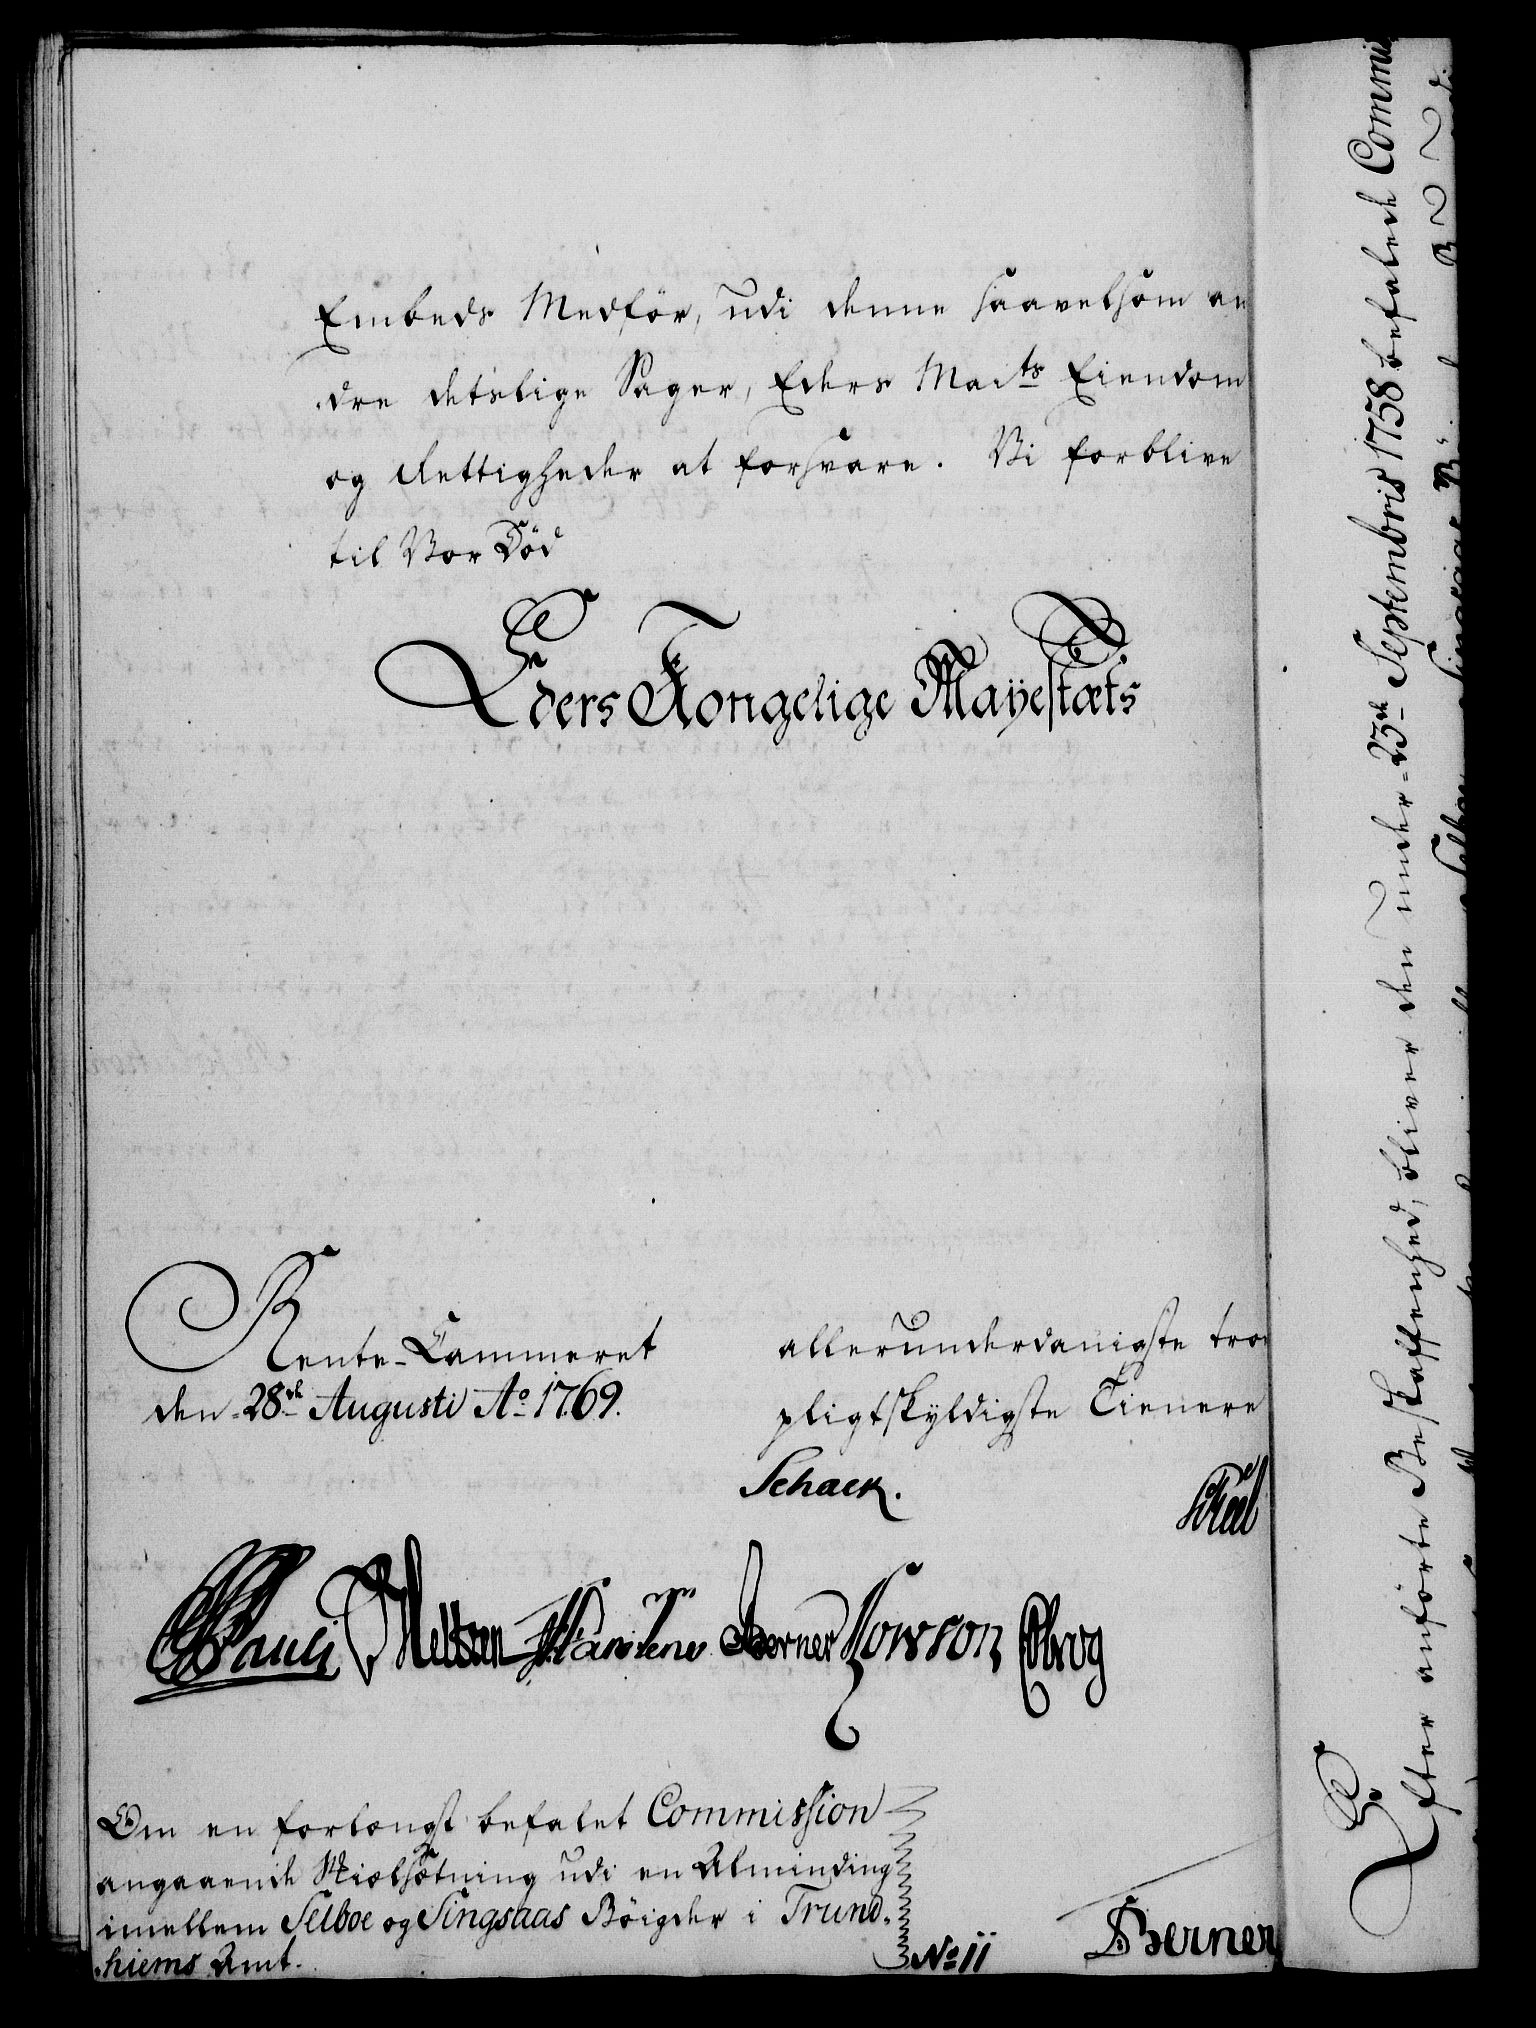 Embeds Medför, udi denne saavelsom an
dre detslige Sager, Eders Maits Eiendom
og Rettigheder at forsvare. Vi forblive
til Vor Död
Eders Kongelige Mayestæts
Rente-Cammeret
den 28de Augusti Ao 1769.
allerunderdanigste troe
pligtskyldigste Tienere
Schack.
Pauli Nelsen Karstens Berner Kowson
Om en forlængst befalet Commission
angaaende Skiælsætning udi en Alminding
imellem Selboe og Singsaas Böigder i Trund-
hiems Amt.
No 11
Berner
Efter anförte Beskaffenhed, bliver den under 23de Septembris 1758 befalede Commis